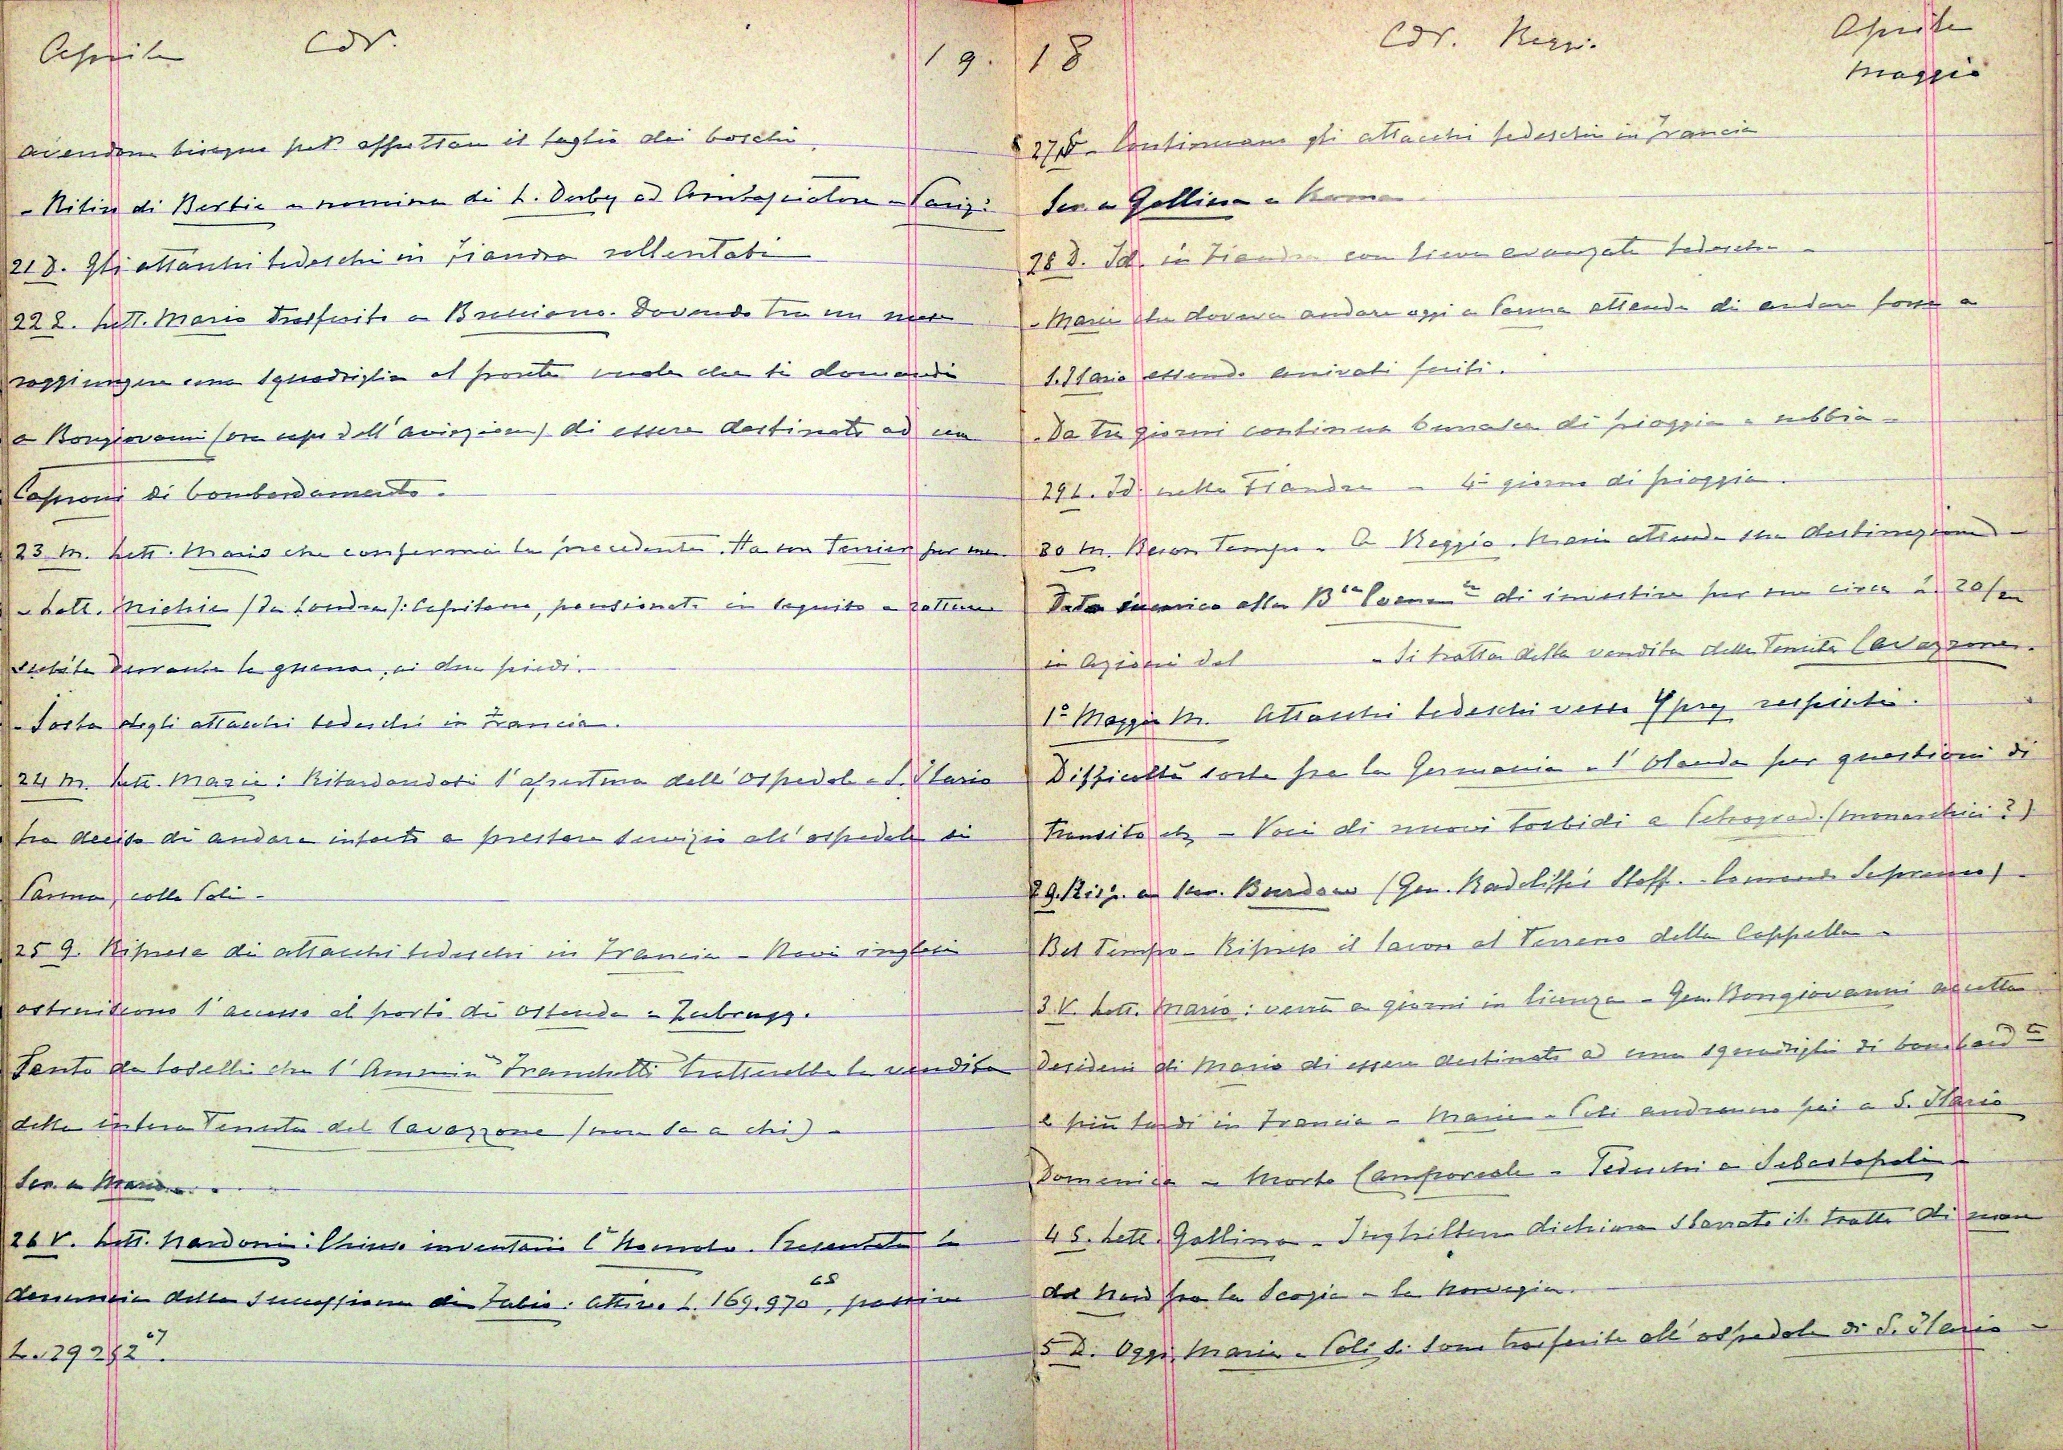 Aprile Cdr. 19.
avendone bisogno per effettuare il taglio dei boschi.
- Ritiro di Bertie e nomina di L. Derby ad Ambasciatore a Parigi
21 D. Gli attacchi tedeschi in Fiandra rallentati
22 L. Lett. Mario trasferito a Bresciano. Dovendo tra un mese
raggiungere una squadriglia al fronte vuole che si domandi
a Bongiovanni (ora capo dell'aviazione) di essere destinato ad un
Caproni di bombardamento.
23 M. Lett. Mario che conferma la precedente. Ha un Terrier per me.
- Lett. Michie (da Londra): Capitano, pensionato in seguito a
subite durante la guerra, ai due piedi.
- Sosta degli attacchi tedeschi in Francia.
24 M. Lett. Maria: Ritardandosi l'apertura dell'ospedale a S. Ilario
ha deciso di andare intanto a prestare servizio all'ospedale di
Parma, colla Poli -
25 G. Ripresa di attacchi tedeschi in Francia - Navi inglesi
ostruiscono l'accesso ai porti di Ostenda e Zeebrugg.
Sento da Coselli che l'Ammin.ne Franchetti tratterebbe la vendita
della intera Tenuta del Cavazzone (non sa a chi) -
Scr. a Mario.
26 V. Lett. Nardoni: Chiuso inventario C. Presentata la
denuncia della successione di Fabio: attivo L. 169.970,68 passivo
L. 29252 67.
18 Cdr. Reggi. Aprile
Maggio
27 S. Continuano gli attacchi tedeschi in Francia
Scr. a Gallina a Roma
28 D. Id. in Fiandra con lieve avanzata tedesca -
- Maria che doveva andare oggi a Parma attende di andare forse a
S. Ilario essendo arrivati feriti.
- Da tre giorni continua burrasca di pioggia e nebbia -
29 L. Id. nelle Fiandre - 4° giorno di pioggia.
30 M. Buon tempo. A Reggio. Maria attende sua destinazione -
Dato incarico alla B.ca Comm.le di investire per me circa L. 20/m
in Azioni del - Si tratta della vendita della Tenuta Cavazzone.
1° Maggio M. Attacchi tedeschi verso Ypres respinti.
Difficoltà sorte fra la Germania e l'Olanda per questioni di
transito etc - Voci di nuovi torbidi a Petrograd. (monarchici?)
2 G. Risp. a Burdon (Gen. Radcliffe's Staff. - Comando Supremo) -
Bel Tempo - Ripreso il lavoro al Terreno della Cappella -
3 V. Lett. Mario: verrà a giorni in licenza - Gen. Bongiovanni accetta
desideri di Mario di essere destinato ad una squadriglia di bombard.to
e più tardi in Francia - Maria e Poli andranno poi a S. Ilario
Domenica - Morto Camporeale - Tedeschi a Sebastopoli -
4 S. Lett. Gallina - Inghilterra dichiara sbarrato il tratto di mare
del Nord fra la Scozia e la Norvegia.
5 D. Oggi Maria e Poli si sono trasferite all'ospedale di S. Ilario -